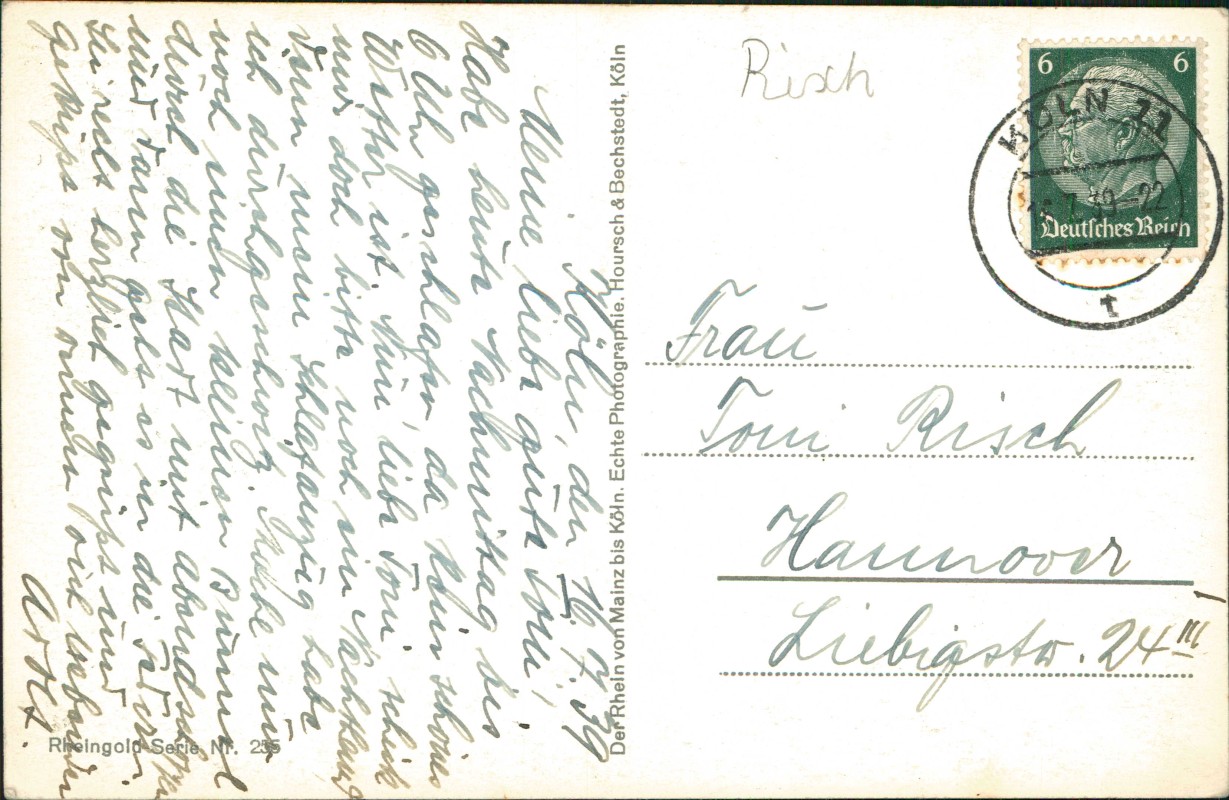 Köln, den 16.7.39
Meine liebe gute Toni!
Habe heute Nachmittag bis
6 Uhr geschlafen, da kein schönes
Wetter ist. Nun, liebe Toni schick
mir doch bitte noch ein Nachthemd
denn meinen Schlafanzug habe
ich durchgeschwitzt. Mache nun
noch einen kleinen Bummel
durch die Stadt mit
und dann geht es in die Federn.
Sei recht herzlich gegrüßt und
geküßt von Deinem Dich liebenden
Adolf.
Rheingold-Serie Nr. 255
Der Rhein von Mainz bis Köln. Echte Photographie. Hoursch & Bechstedt, Köln
Risch
6 6
Deutsches Reich
KÖLN 11
16.7.39-22
t
Frau
Toni Risch
Hannover
Liebigstr. 24 III